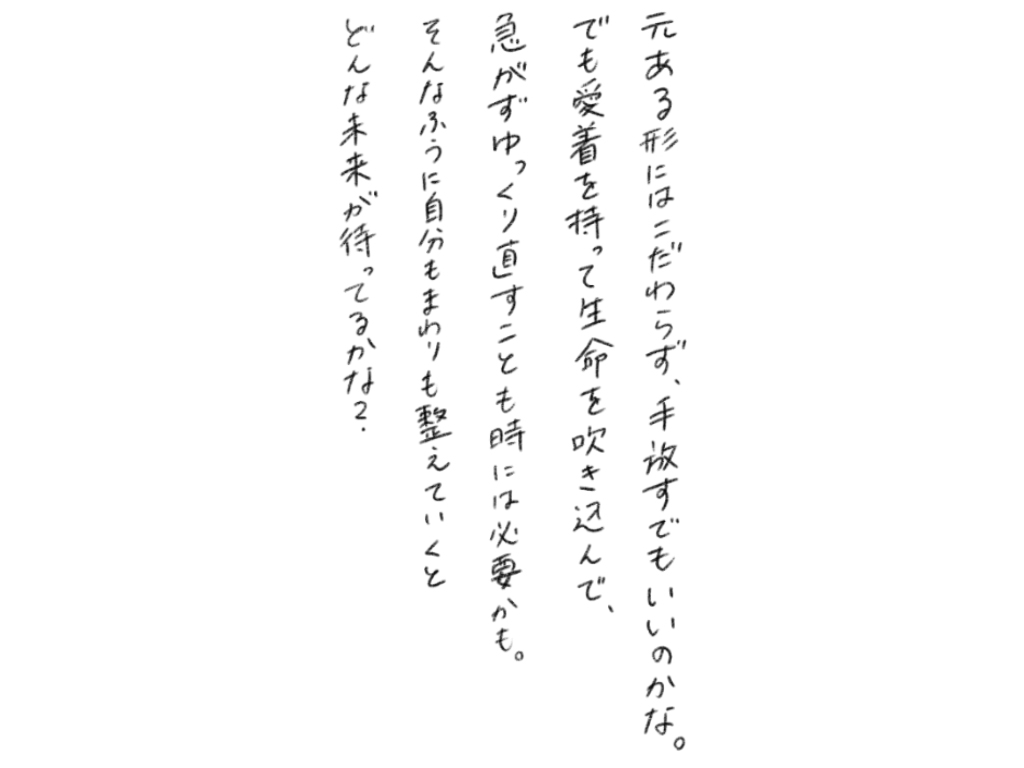 元ある形にはこだわらず、手放すでもいいのかな。
でも愛着を持って生命を吹き込んで、
急がずゆっくり直すことも時には必要かも。
そんなふうに自分もまわりも整えていくと
どんな未来が待ってるかな?